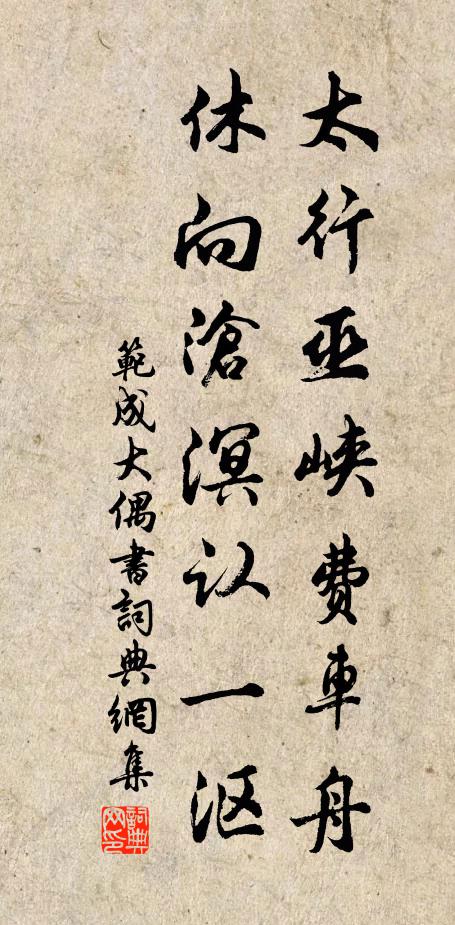 太行巫峡費車舟
休向滄溟认一沤
範成大偶書詞典網集
詞典网印